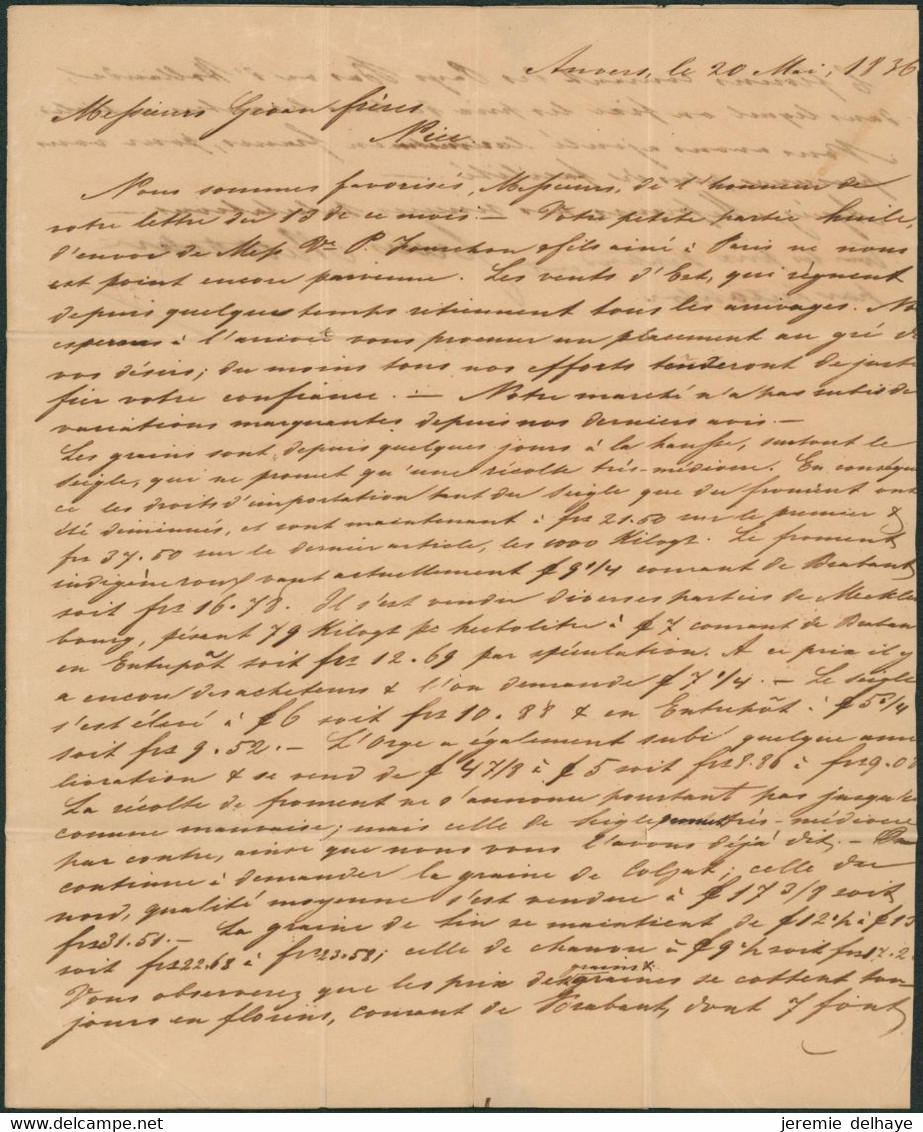 Anvers, le 20 Mai, 1836
Messieurs frères
Nice
Nous sommes favorisés, Messieurs, de l'honneur de
votre lettre du 13 de ce mois. — Votre petite partie huile,
d'envoi de Mess Ve P. & fils ainé à Paris ne nous
est point encore parvenue. Les vents d'Est, qui règnent
depuis quelques temps retiennent tous les arrivages. No
esperons à l'arrivée vous procurer un placement au gré d
vos désirs; du moins tous nos efforts tenderont de justi
fier votre confiance. — Notre marché n'a pas subis de
variations marquantes depuis nos derniers avis. —
Les grains sont depuis quelques jours à la hausse, surtout le
Seigle, qui ne promet qu'une récolte très-médiocre. En conséquen
ce les droits d'importation tant du Seigle que du froment ont
été diminués, et sont maintenant à frs 21.50 sur le premier &
frs 37.50 sur le dernier article, les 1000 Kilogs. Le froment
indigène roux vaut actuellement f 9 1/4 courant de Brabant
soit frs 16.78. Il s'est vendu diverses parties de Mecklen
bourg, pésant 79 Kilogs pr hectolitre à f 7 courant de Braban
en Entrepôt soit frs 12.69 par spéculation. A ce prix il y
a encore des acheteurs & l'on demande f 7 1/4. — Le Seigle
s'est élevé à f 6 soit frs 10.88 & en Entrepôt à f 5 1/4
soit frs 9.52. — L'Orge a également subi quelque amé
lioration & se vend de f 4 7/8 à f 5 soit frs 8.86 à frs 9.08
La récolte de froment ne s'annonce pourtant pas jusqu'ic
comme mauvaise; mais celle de Seigle promet très-médiocre
par contre, ainsi que nous vous l'avons déjà dit. — On
continue à demander la graine de Colzat; celle du
nord, qualité moyenne s'est vendue à f 17 3/8 soit
frs 31.51. — La graine de lin se maintient de f 12 1/2 à f 13
soit frs 22.68 à frs 23.58; celle de chanvre à f 9 1/2 soit frs 17.2
grains &
Vous observerez que les prix des graines se cottent tou-
jours en florins, courant de Brabant, dont 7 font
jeremie delhaye